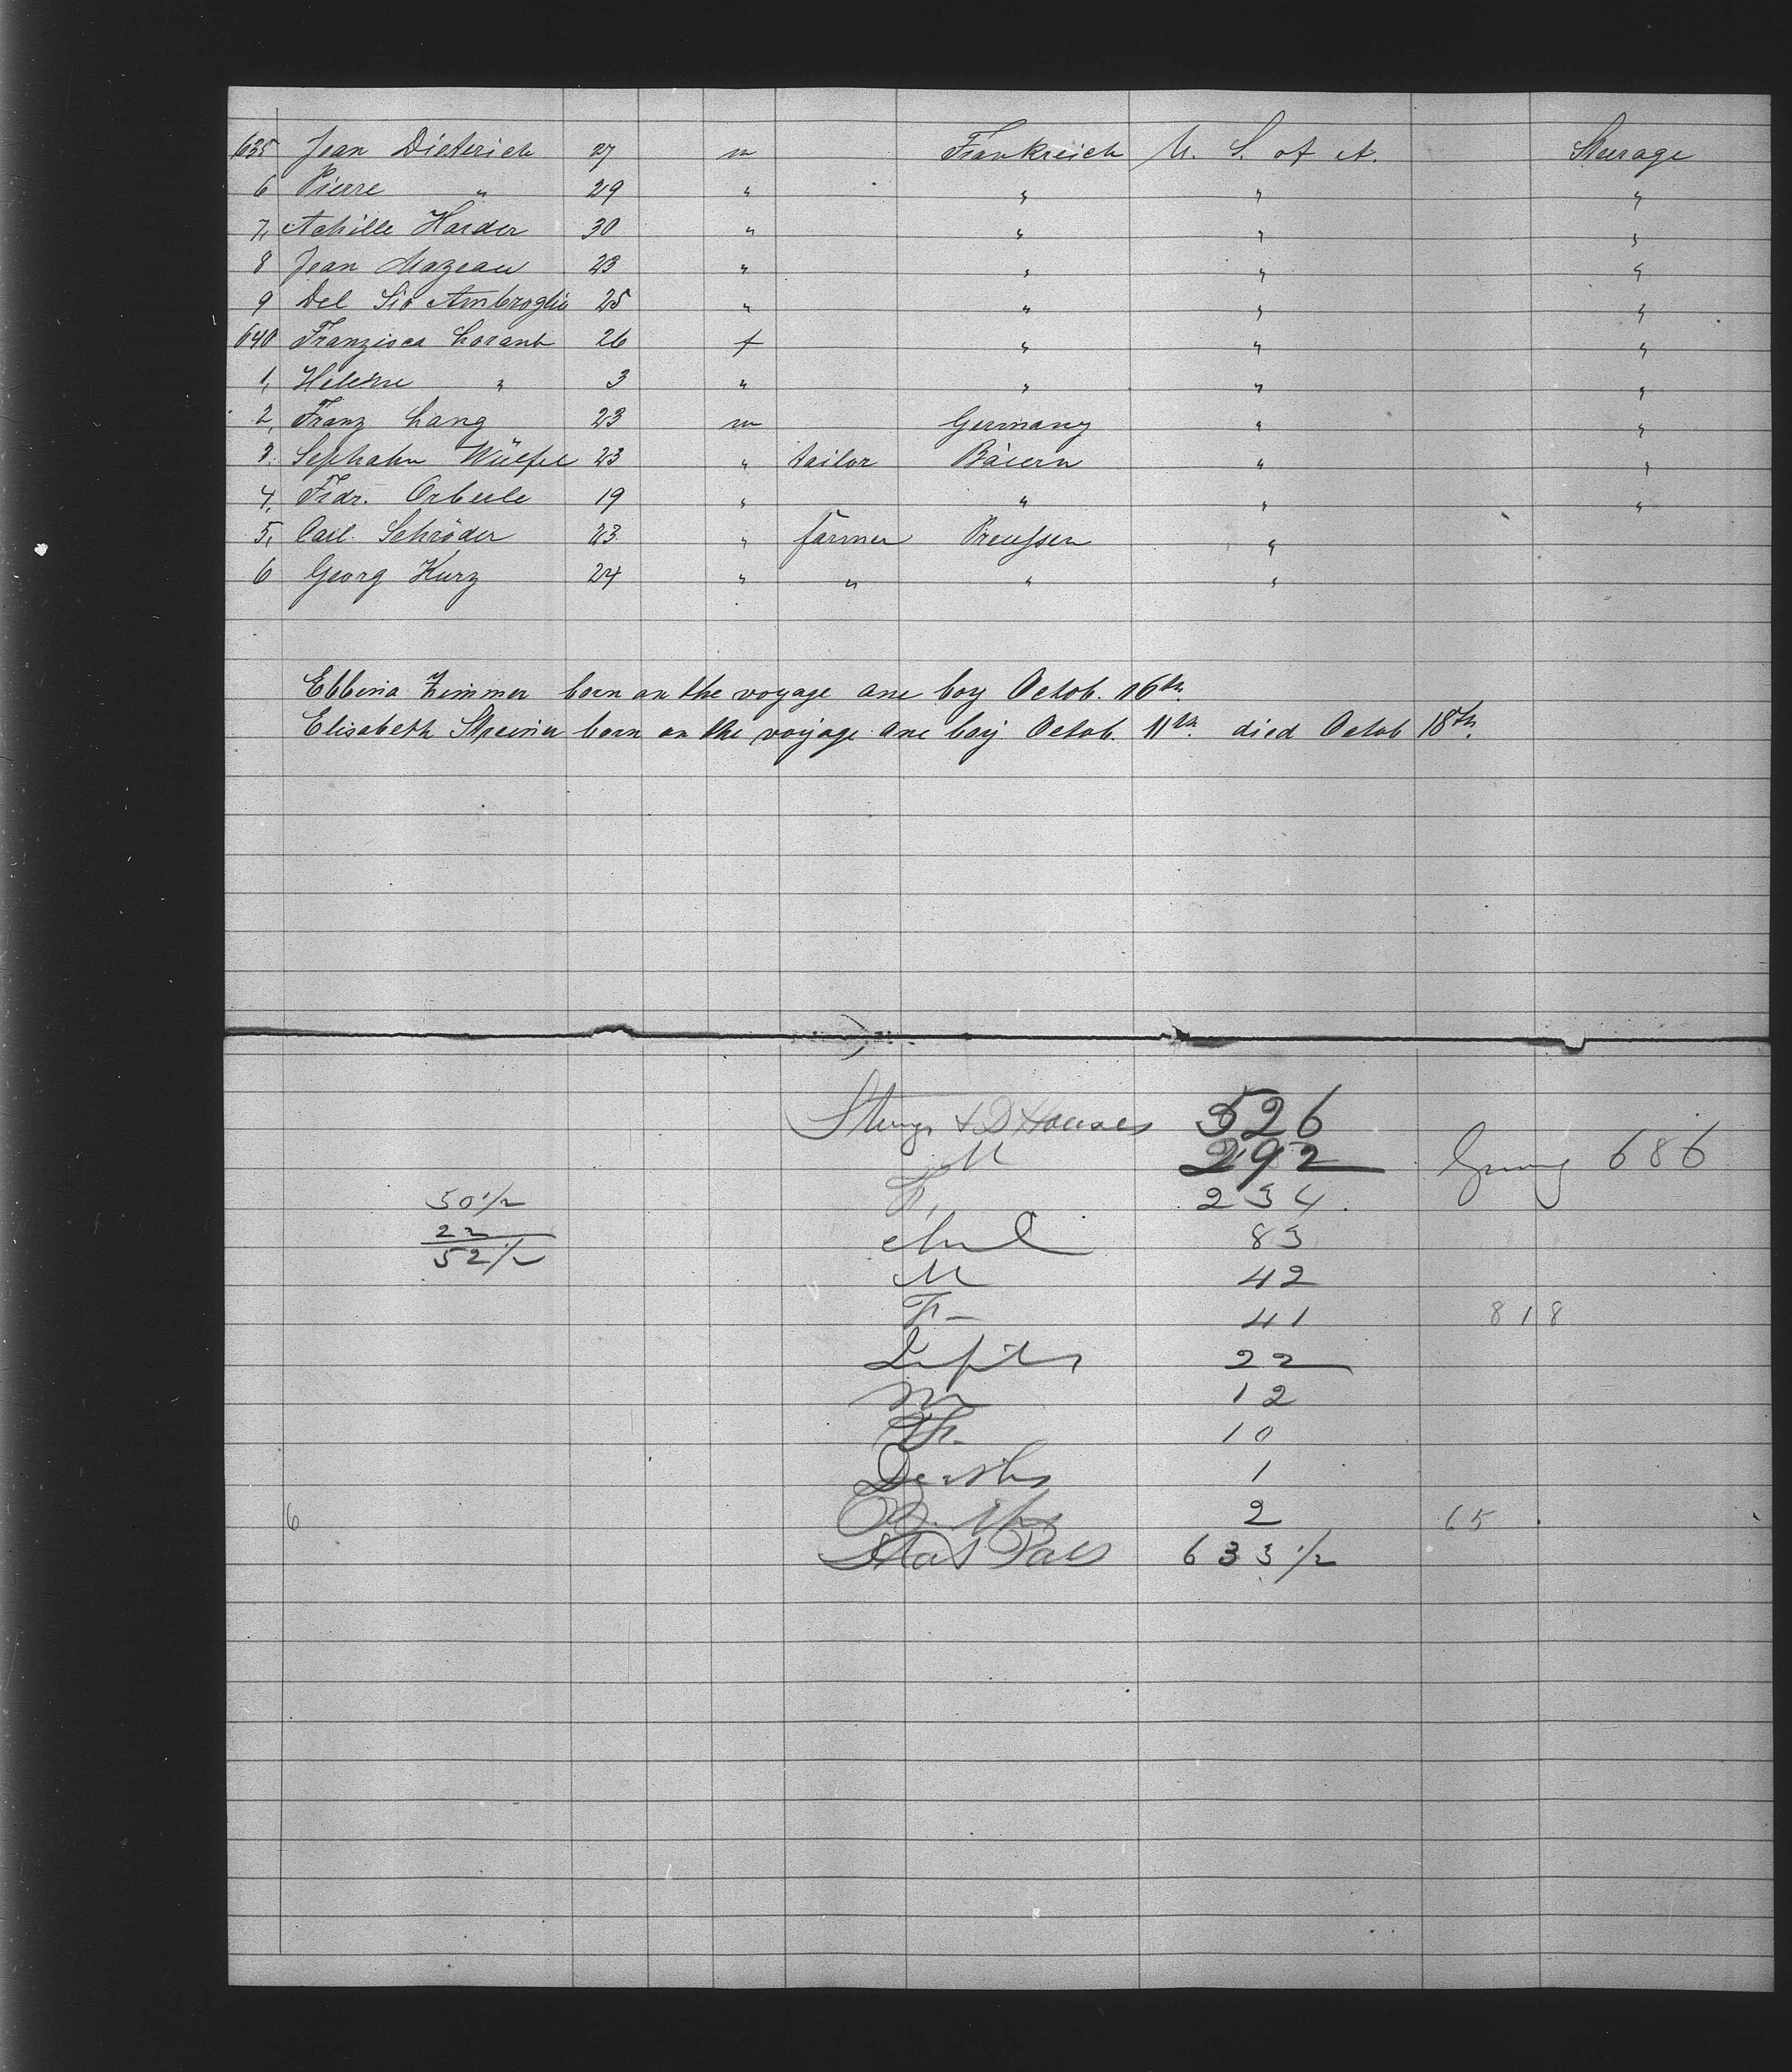 635 Jean Dieterich 27 m Frankreich U. S. of A. Steerage
6 Pierre " 29 " " " "
7, Achille Harder 30 " " " "
8 Jean Mazeau 23 " " " "
9 Del Sio Ambroglio 25 " " " "
640 Franzisca Lorant 26 f " " "
1, Helene " 3 " " " "
2, Franz Lang 23 m Germany " "
3. 23 " tailor Baiern " "
4, Frdr. 19 " " " "
5, Carl Schröder 23 " farmer Preussen "
6 Georg Kurz 24 " " " "
Zimmer born on the voyage one boy Octob. 16th.
Elisabeth born on the voyage one boy Octob. 11th. died Octob 18th.
526
M 292 686
F, 234
50 1/2
22
52 1/2
Chil 83
M 42
F- 41 818
22
M 12
F- 10
Deaths 1
6 Births 2 65
633 1/2